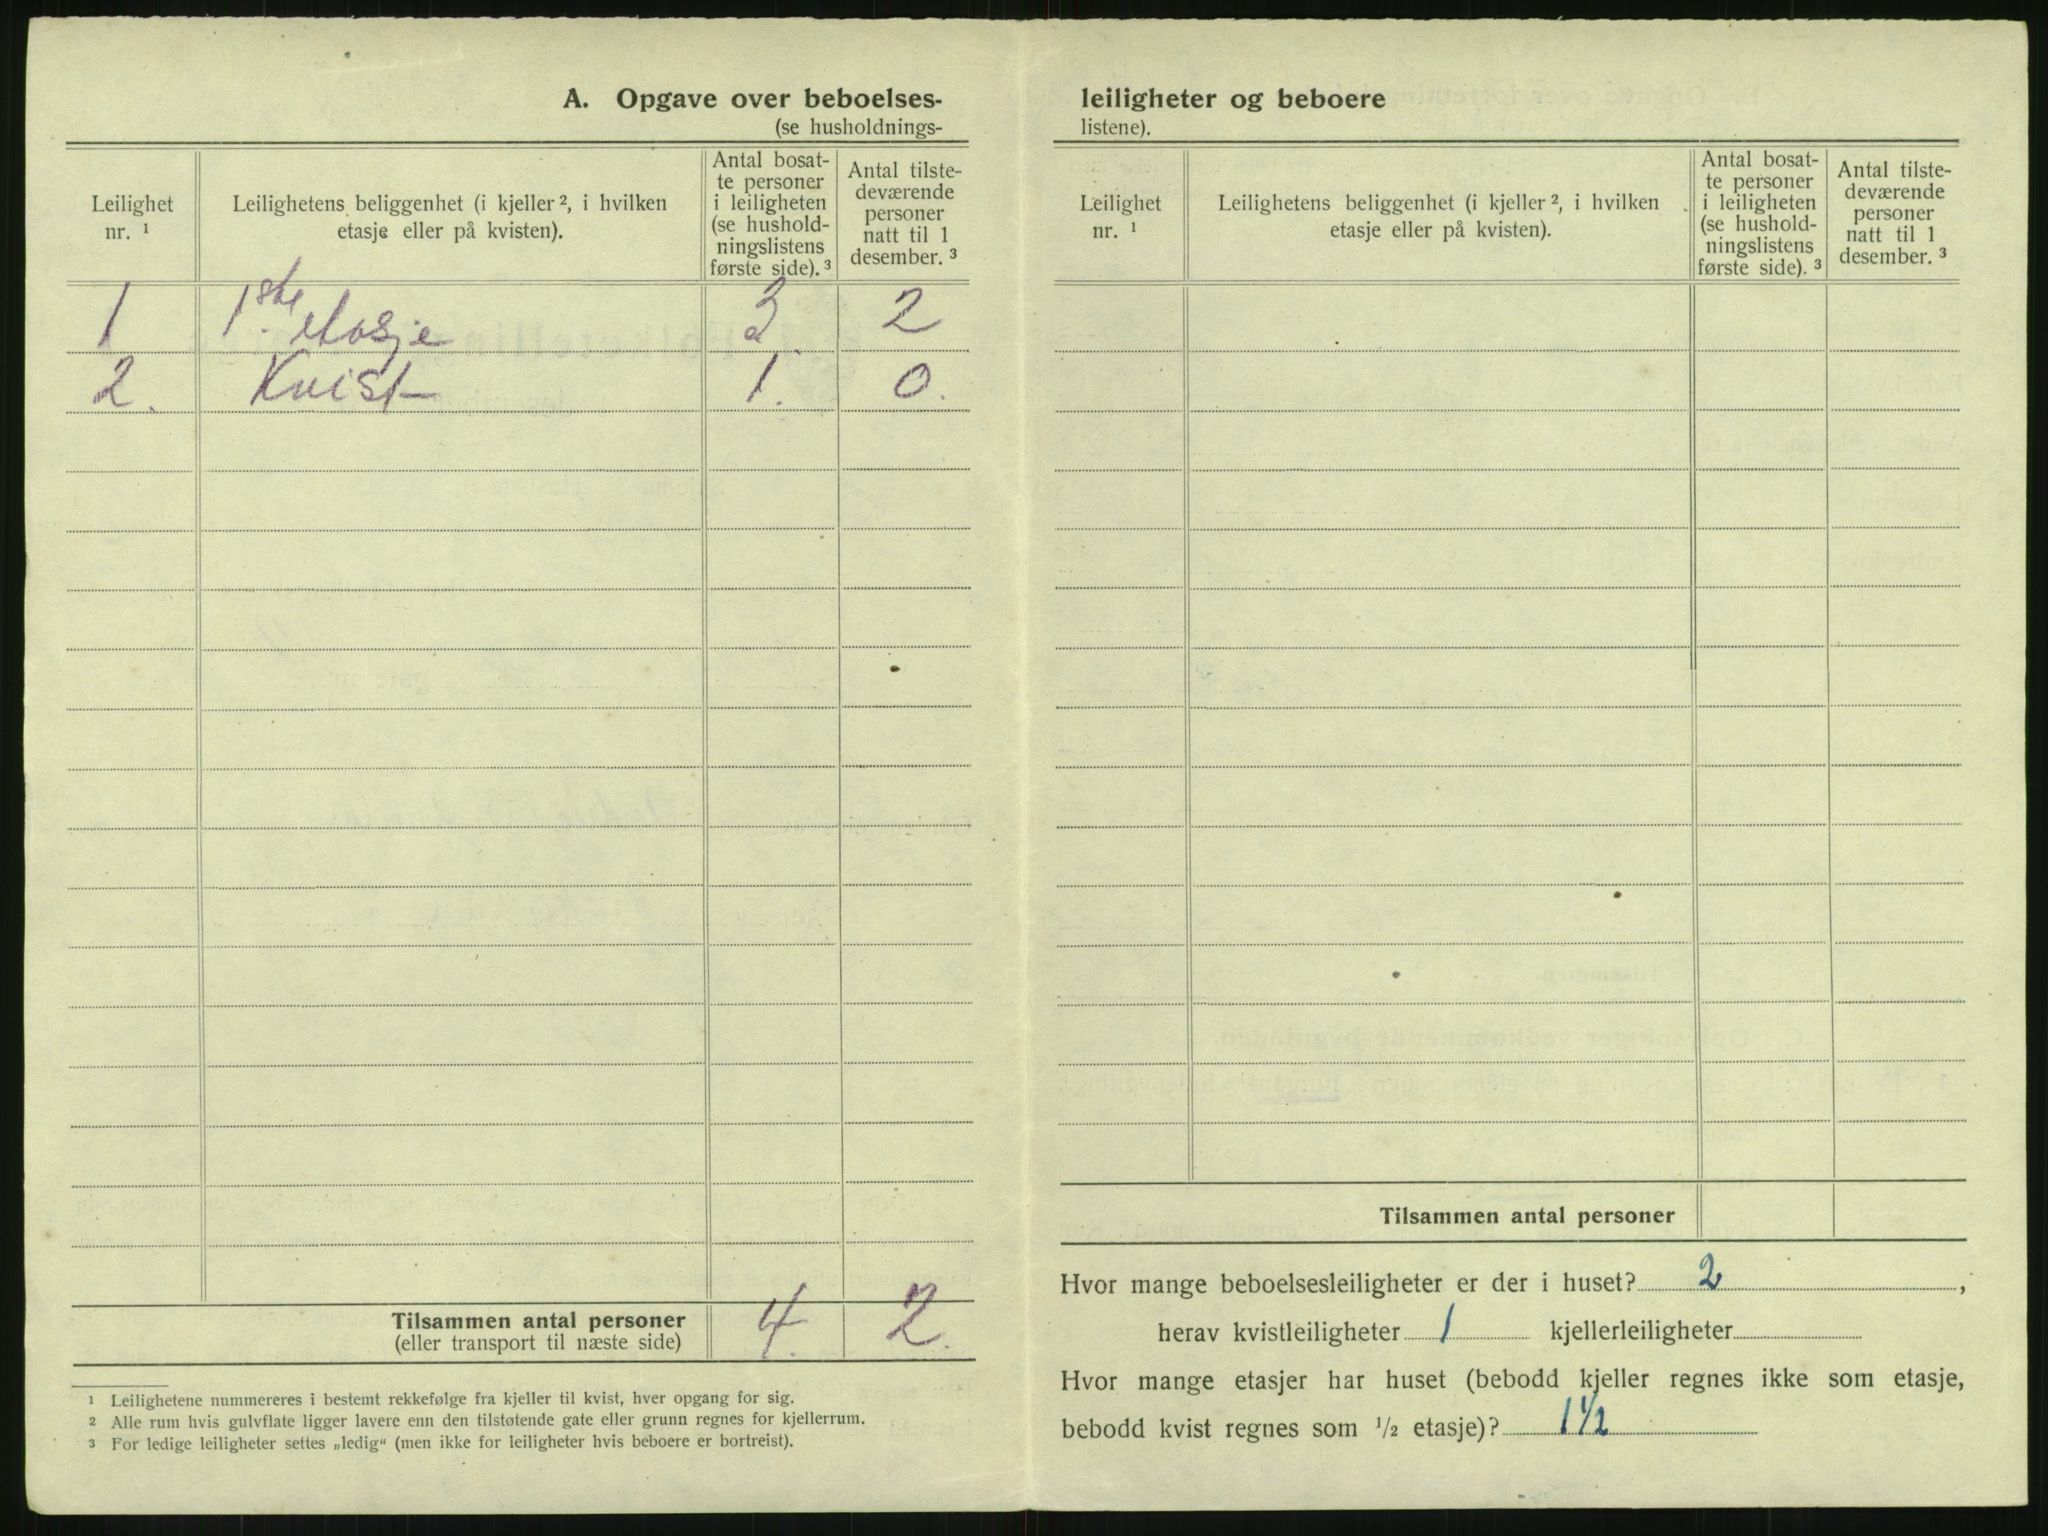 A. Opgave over beboelses-
(se husholdnings-
Leilighet nr. 1
Leilighetens beliggenhet (i kjeller 2, i hvilken
etasje eller på kvisten).
Antal bosat-
te personer
i leiligheten
(se hushold-
ningslistens
første side). 3
Antal tilste-
deværende
personer
natt til 1
desember. 3
1 1ste etasje 3 2
2. Kvist 1. 0.
Tilsammen antal personer 4. 2.
(eller transport til næste side)
1 Leilighetene nummereres i bestemt rekkefølge fra kjeller til kvist, hver opgang for sig.
2 Alle rum hvis gulvflate ligger lavere enn den tilstøtende gate eller grunn regnes for kjellerrum.
3 For ledige leiligheter settes „ledig“ (men ikke for leiligheter hvis beboere er bortreist).
leiligheter og beboere
listene).
Leilighet
nr. 1
Leilighetens beliggenhet (i kjeller 2, i hvilken
etasje eller på kvisten).
Antal bosat-
te personer
i leiligheten
(se hushold-
ningslistens
første side). 3
Antal tilste-
deværende
personer
natt til 1
desember. 3
Tilsammen antal personer
Hvor mange beboelsesleiligheter er der i huset? 2,
herav kvistleiligheter 1 kjellerleiligheter
Hvor mange etasjer har huset (bebodd kjeller regnes ikke som etasje,
bebodd kvist regnes som 1/2 etasje)? 1 1/2